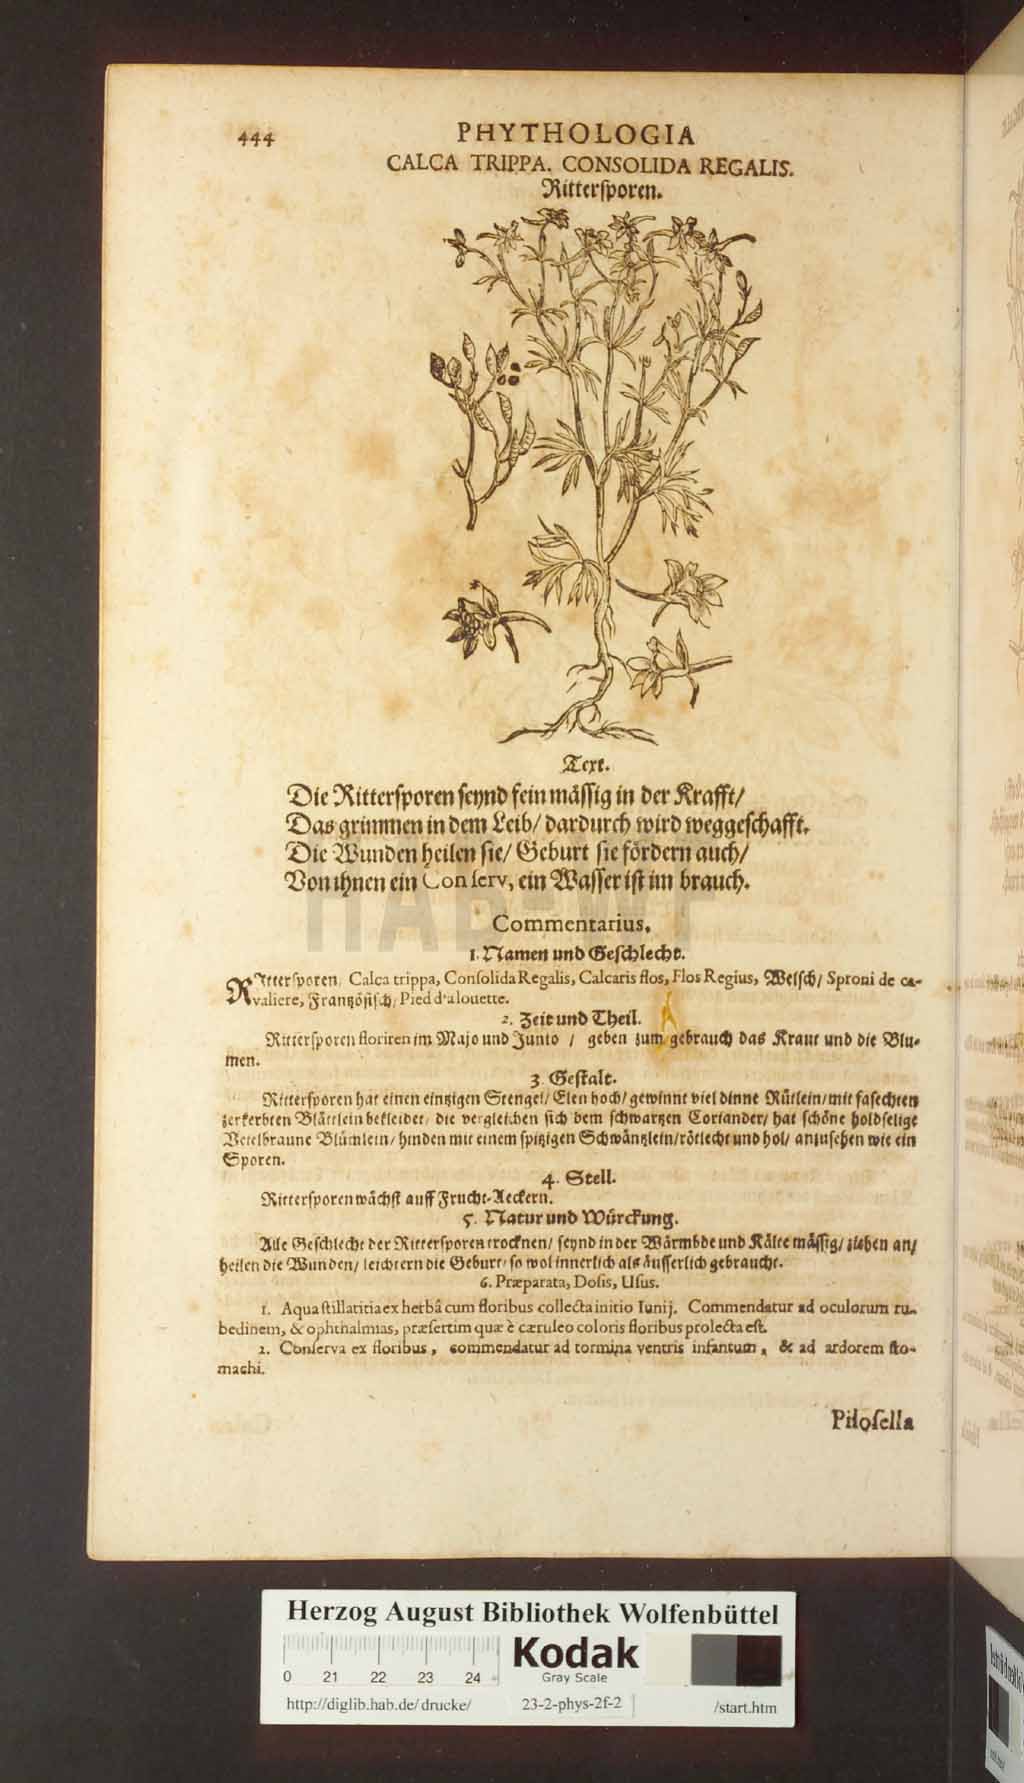 444
PHYTHOLOGIA
CALCA TRIPPA. CONSOLIDA REGALIS.
Ritterſporen.
Text.
Die Ritterſporen ſeynd fein mäſſig in der Krafft/
Das grimmen in dem Leib/ dardurch wird weggeſchafft.
Die Wunden heilen ſie/ Geburt ſie fördern auch/
Von ihnen ein Conſerv, ein Waſſer iſt im brauch.
HAB-WF
Commentarius.
1. Namen und Geſchlecht.
RItterſporen/ Calca trippa, Conſolida Regalis, Calcaris flos, Flos Regius, Welſch/ Sproni de ca-
valiere, Frantzöſiſch/ Pied d'alouette.
2. Zeit und Theil.
Ritterſporen floriren im Majo und Junio / geben zum gebrauch das Kraut und die Blu-
men.
3. Geſtalt.
Ritterſporen hat einen eintzigen Stengel/ Elen hoch/ gewinnt viel dinne Rütlein/ mit faſechten
zerkerbten Blättlein bekleidet/ die vergleichen ſich dem ſchwartzen Coriander/ hat ſchöne holdſelige
Veielbraune Blümlein/ hinden mit einem ſpitzigen Schwäntzlein/ rötlecht und hol/ anzuſehen wie ein
Sporen.
4. Stell.
Ritterſporen wächſt auff Frucht-Aeckern.
5. Natur und Würckung.
Alle Geſchlecht der Ritterſporen trocknen/ ſeynd in der Wärmbde und Kälte mäſſig/ ziehen an/
heilen die Wunden/ leichtern die Geburt/ ſo wol innerlich als äuſſerlich gebraucht.
6. Præparata, Doſis, Uſus.
1. Aqua ſtillatitia ex herbâ cum floribus collecta initio Iunij. Commendatur ad oculorum ru-
bedinem, & ophthalmias, præſertim quæ è cæruleo coloris floribus prolecta eſt.
2. Conſerva ex floribus, commendatur ad tormina ventris infantum, & ad ardorem ſto-
machi.
Piloſella
Herzog August Bibliothek Wolfenbüttel
0 21 22 23 24
Kodak
Gray Scale
http://diglib.hab.de/drucke/ 23-2-phys-2f-2 /start.htm